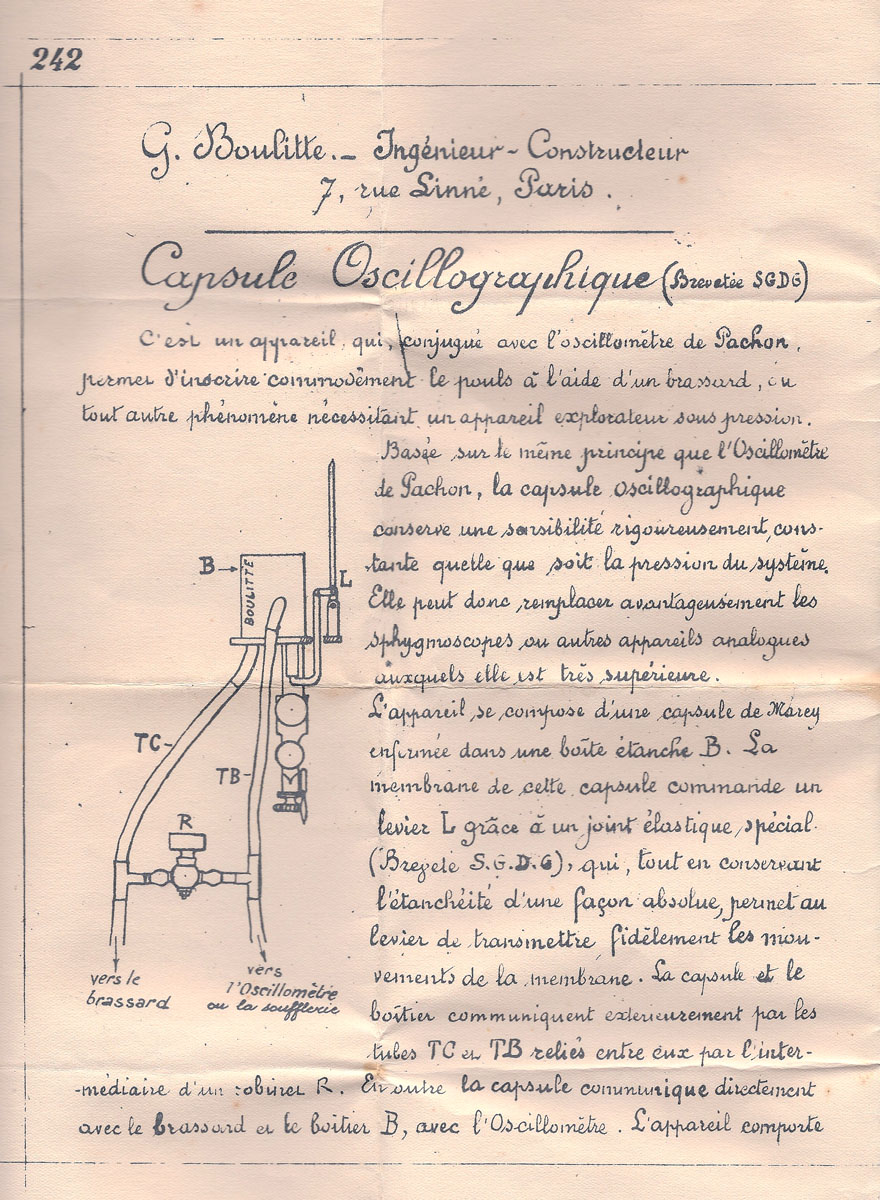 242
G. Boulitte._ Ingénieur-Constructeur
7, rue Linné, Paris.
Capsule Oscillographique (Brevetée SGDG)
C'est un appareil qui, conjugué avec l'oscillomètre de Pachon,
permet d'inscrire commodément le pouls à l'aide d'un brassard, ou
tout autre phénomène nécessitant un appareil explorateur sous pression.
Basée sur le même principe que l'Oscillomètre
de Pachon, la capsule oscillographique
conserve une sensibilité rigoureusement cons-
tante quelle que soit la pression du système.
Elle peut donc remplacer avantageusement les
sphygmoscopes ou autres appareils analogues
auxquels elle est très supérieure.
L'appareil se compose d'une capsule de Marey
enfermée dans une boîte étanche B. La
membrane de cette capsule commande un
levier L grâce à un joint élastique spécial
(Breveté S.G.D.G), qui, tout en conservant
l'étanchéité d'une façon absolue, permet au
levier de transmettre fidèlement les mou-
vements de la membrane. La capsule et le
boîtier communiquent extérieurement par les
tubes TC et TB reliés entre eux par l'inter-
-médiaire d'un robinet R. En outre la capsule communique directement
avec le brassard et le boîtier B, avec l'Oscillomètre. L'appareil comporte
B
BOULITTE
L
TC
TB
R
vers le
brassard
vers
l'Oscillomètre
ou la soufflerie